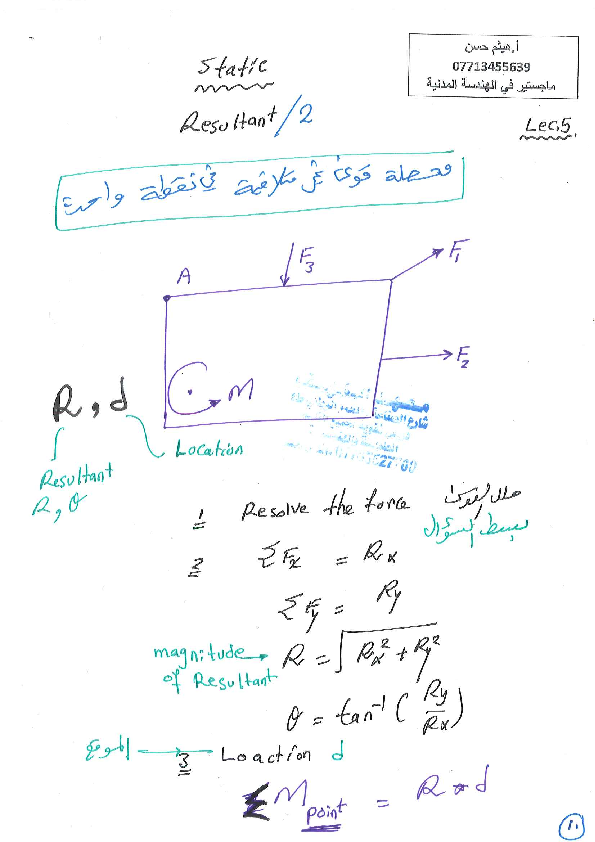 أ.هيثم حسن
07713455639
ماجستير في الهندسة المدنية
Static
Resultant/2
Lec.5
محصلة قوى غير متلاقية في نقطة واحدة
A
F3
F1
F2
M
R, d
Location
Resultant
R, θ
1 Resolve the force حلل القوى
بسط السؤال
2 ΣFx = Rx
ΣFy = Ry
magnitude of Resultant → R = √(Rx² + Ry²)
θ = tan⁻¹ (Ry/Rx)
الموقع → 3 Loaction d
ΣM point = R * d
١٠